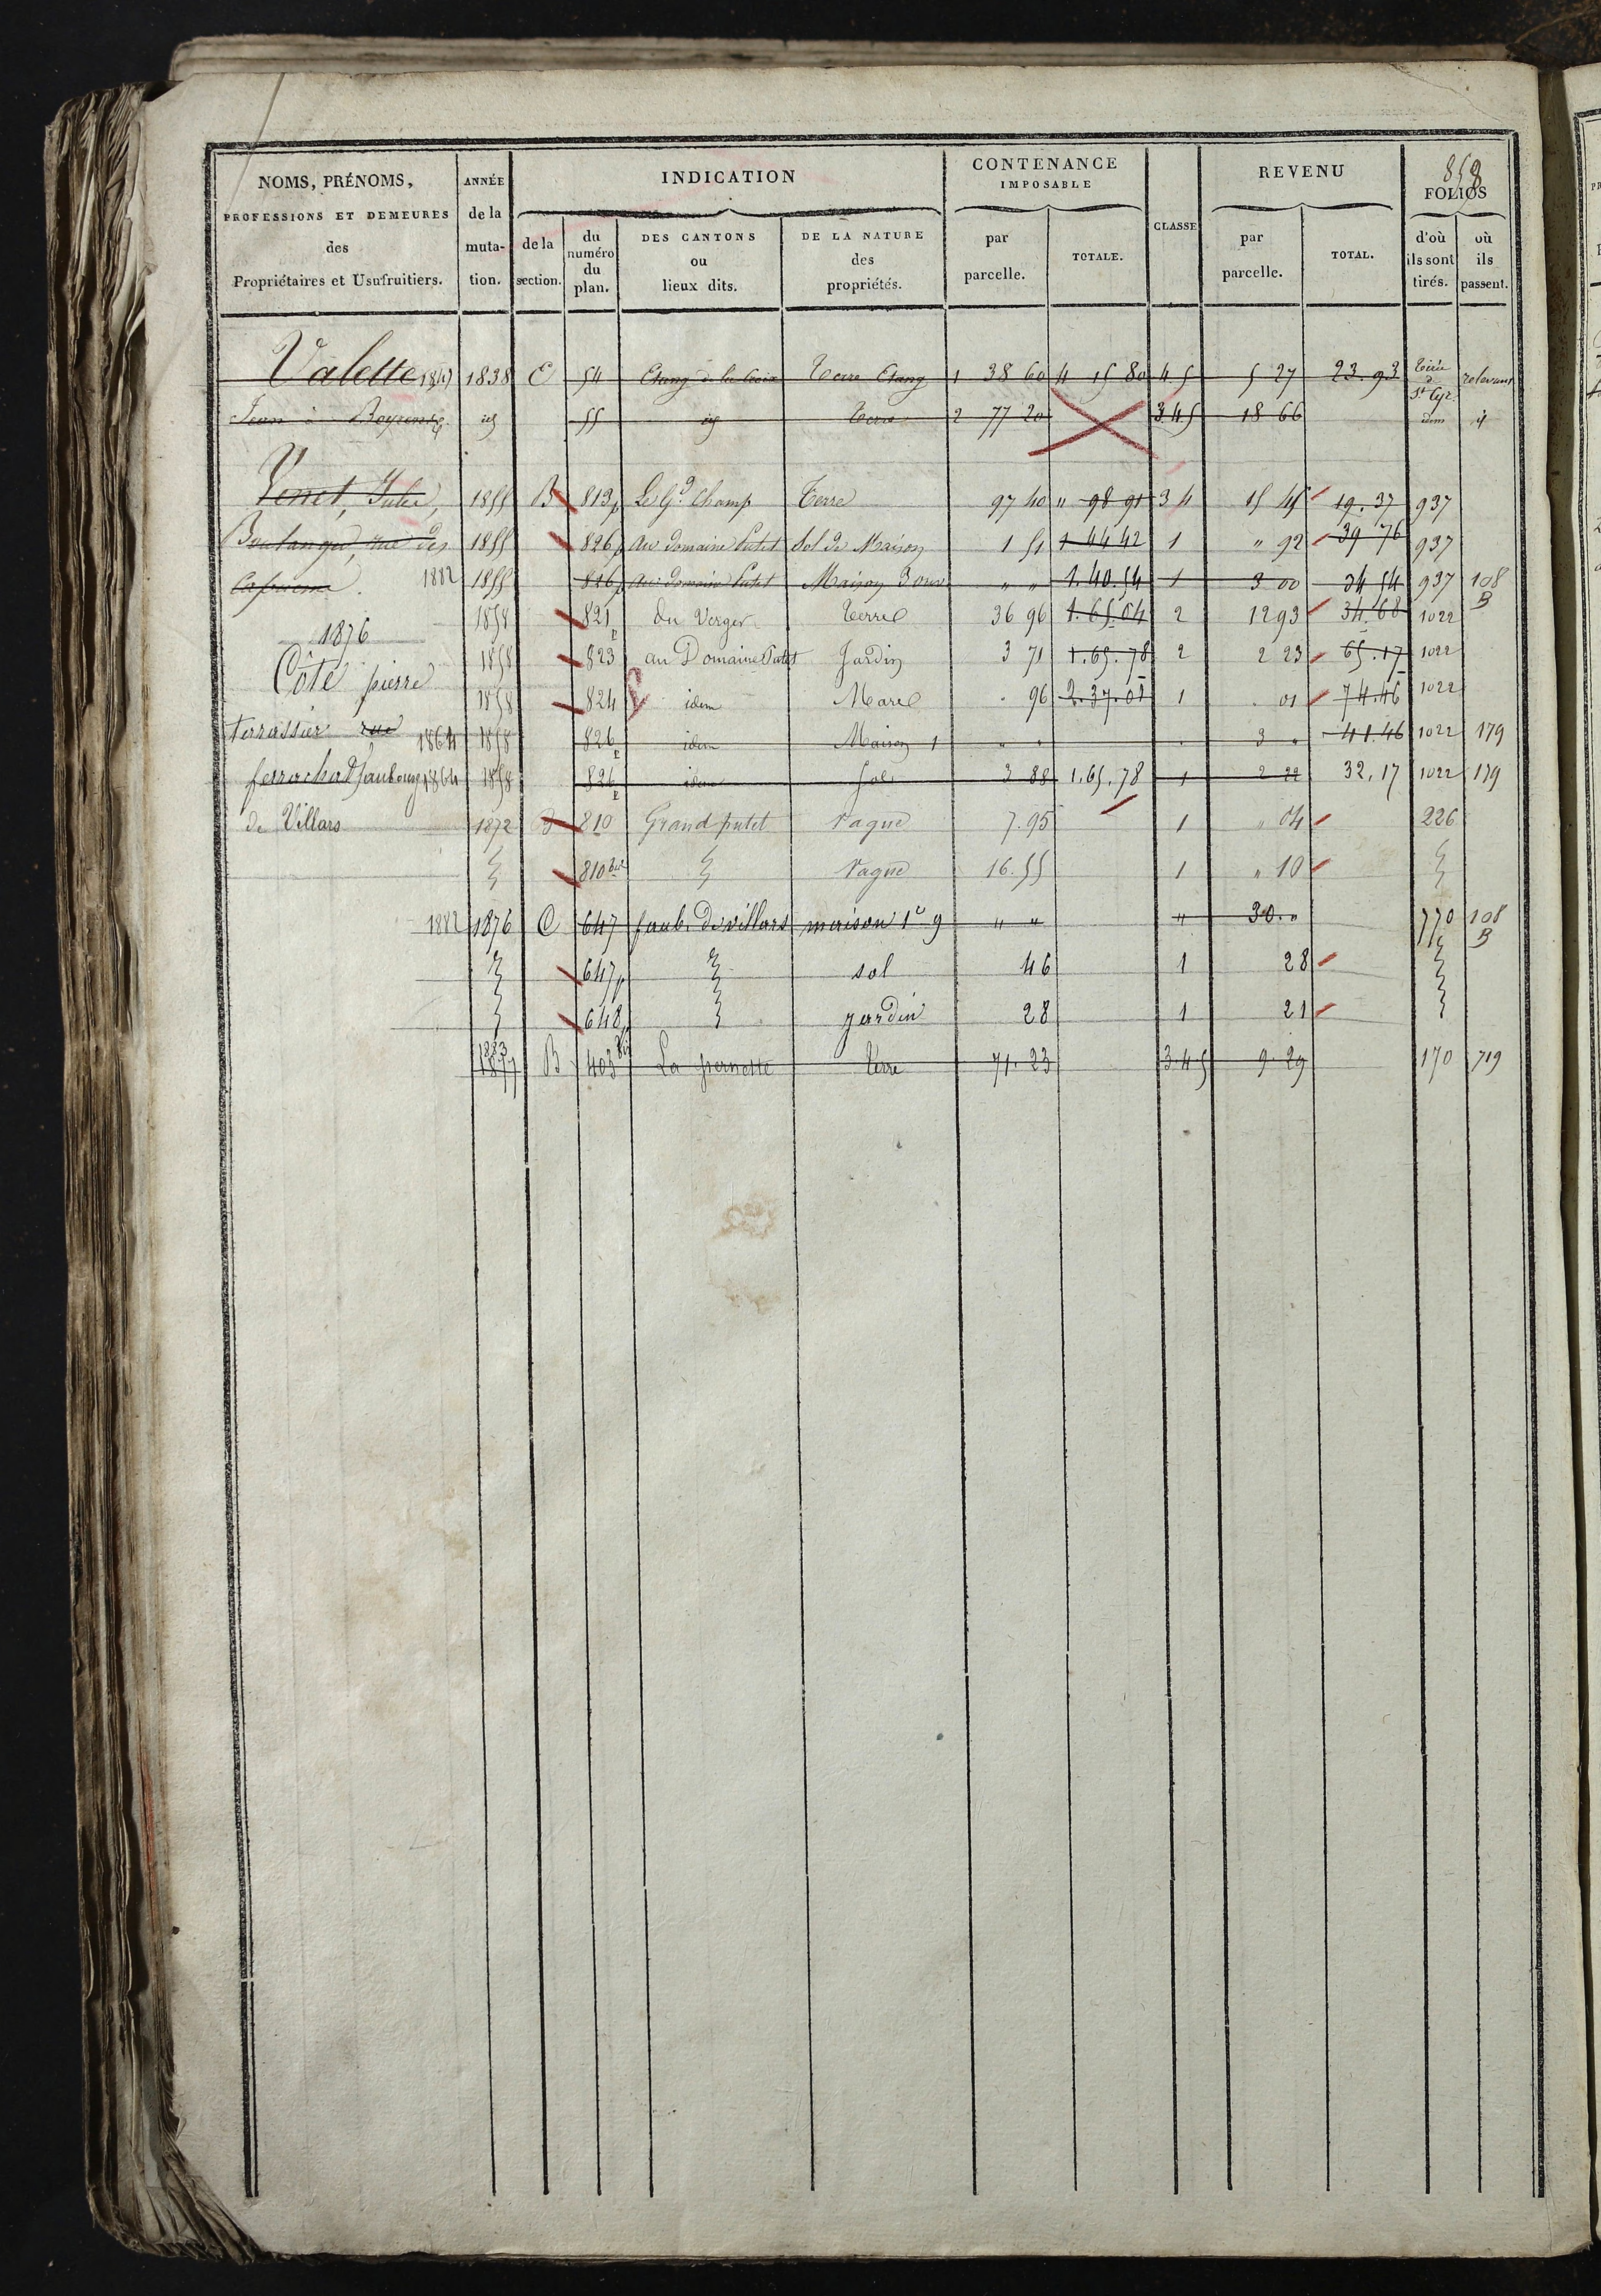 858
NOMS, PRÉNOMS, PROFESSIONS ET DEMEURES des Propriétaires et Usufruitiers.
ANNÉE de la muta-tion.
INDICATION
de la section.
du numéro du plan.
DES CANTONS ou lieux dits.
DE LA NATURE des propriétés.
CONTENANCE IMPOSABLE
par parcelle.
TOTALE.
CLASSE
REVENU
par parcelle.
TOTAL.
FOLIOS
d'où ils sont tirés.
où ils passent.
Valette 1847 1838 E 54 Etang de la Croix Terre Etang 1 38 60 4 15 80 4 5 5 27 23.93 St Cyr
Jean à id 55 id Terre 2 77 20 3.4 5 18 66 idem id
Venet, 1855 B 813p Le Gd Champ Terre 97 40 " 98 91 3 4 15 45 19.37 937
Boulanger, rue des 1855 826p au domaine Putet Sol de Maison 1 51 1 44 42 1 " 92 39 76 937
Capucins. 1882 1855 826p au domaine Putet Maison 3 ouv " " 1.40.54 1 3 00 34 54 937 108 B
1858 821p du Verger Terre 36 96 1.65.04 2 12 93 34.68 1022
1876
1858 823 au Domaine Putet Jardin 3 71 1.65.78 2 2 23 65.17 1022
Côte pierre
1858 824 idem Mare . 96 2.37.01 1 . 01 74.46 1022
terrassier rue 1864 1858 826p idem Maison 1 " " 3 " 41.46 1022 179
ferrachat faubourg 1864 1858 826p idem Sol 3 88 1.65.78 1 2 22 32,17 1022 179
de Villars 1872 B 810 Grand putet Vague 7.95 1 " 04 226
810 bis Vague 16.55 1 " 10
1882 1876 C 647 faub. de villars maison 1e 9 " " " 30. " 770 108 B
647p sol 46 1 28
648p jardin 28 1 21
1883 1877 B 403 bis La pernette Terre 71.23 3 4 5 9.29 170 719